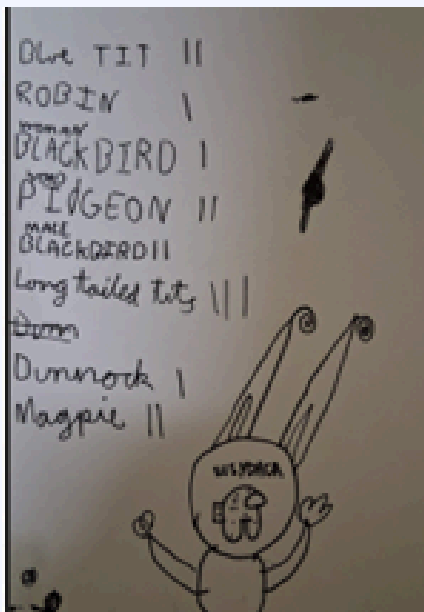 Blue TIT ||
ROBIN |
woman
BLACKBIRD |
wood
PIDGEON ||
MALE
BLACKBIRD ||
Long tailed tits |||
Dunn
Dunnock |
Magpie ||